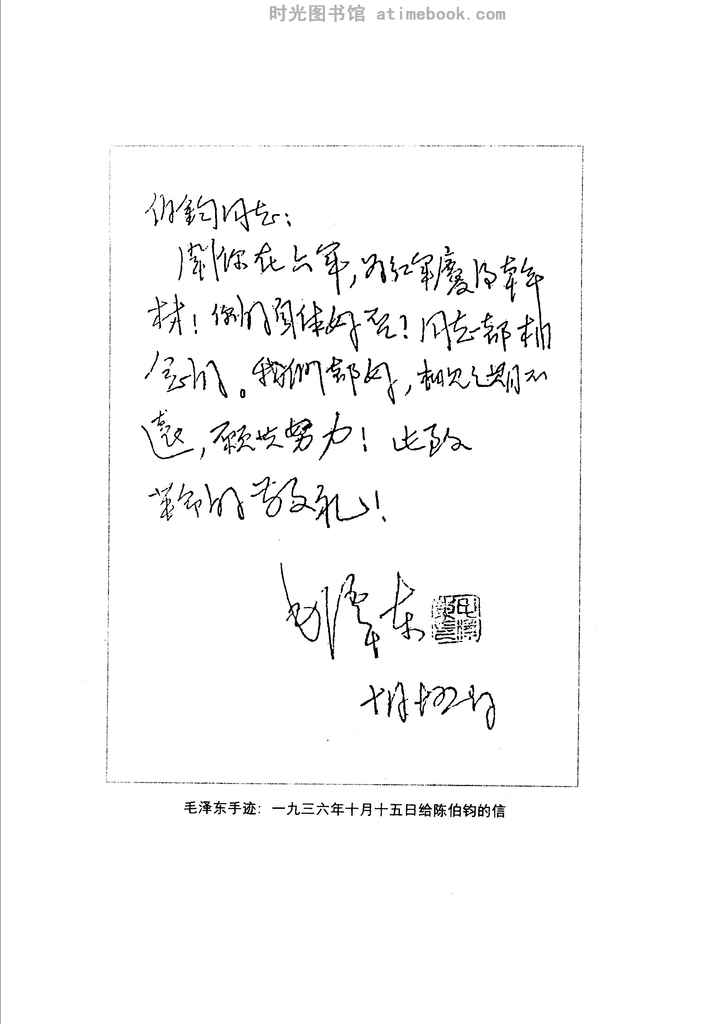 时光图书馆 atimebook.com
伯鈞同志：
聞你在六军，为红军慶得幹
材！你的身体好否？同志都相
念的。我們都好，相见之期不
遠，願共努力！此致
革命的敬礼！
毛澤东
十月十五日
毛泽东手迹：一九三六年十月十五日给陈伯钧的信